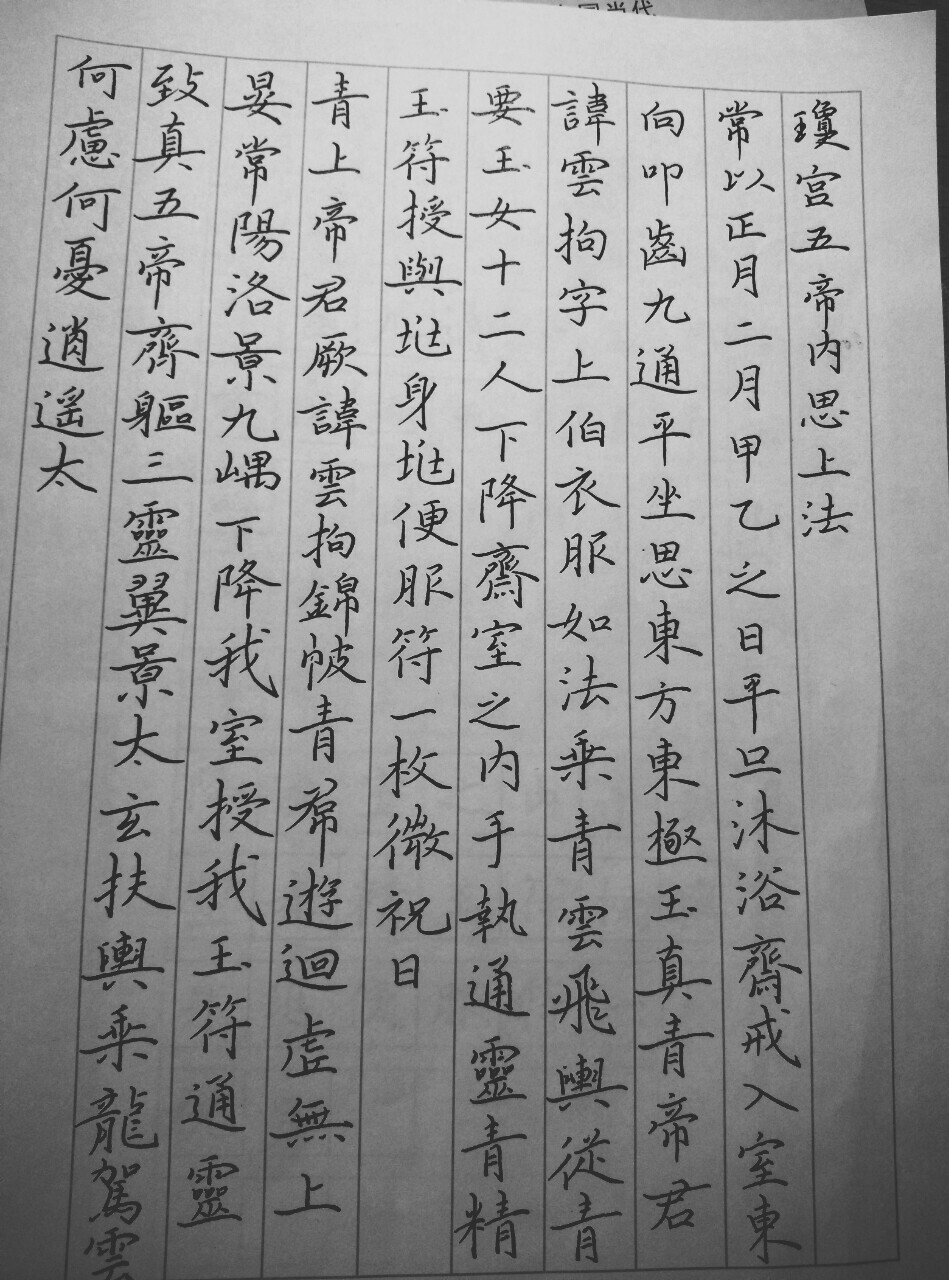 瓊宮五帝内思上法
常以正月二月甲乙之日平旦沐浴齋戒入室東
向叩齒九通平坐思東方東極玉真青帝君
諱雲拘字上伯衣服如法乘青雲飛輿從青
要玉女十二人下降齋室之内手執通靈青精
玉符授與兆身兆便服符一枚微祝曰
青上帝君厥諱雲拘錦帔青帬遊迴虛無上
晏常陽洛景九嵎下降我室授我玉符通靈
致真五帝齊軀三靈翼景太玄扶輿乘龍駕雲
何慮何憂逍遥太